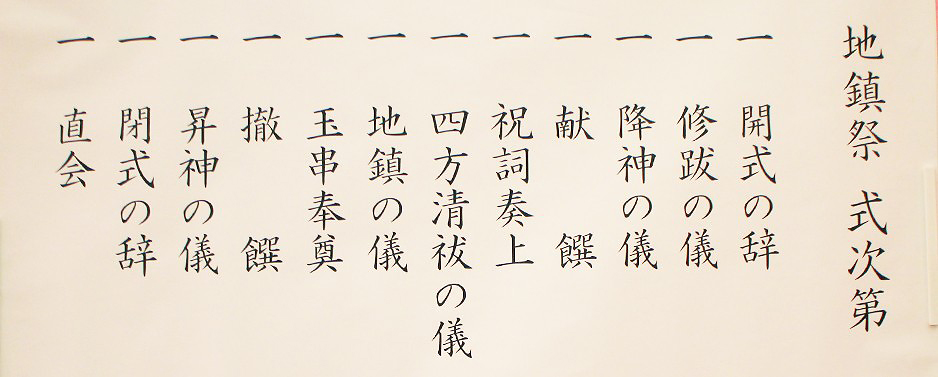 地鎮祭 式次第
一 開式の辞
一 修跋の儀
一 降神の儀
一 献饌
一 祝詞奏上
一 四方清祓の儀
一 地鎮の儀
一 玉串奉奠
一 撤饌
一 昇神の儀
一 閉式の辞
一 直会